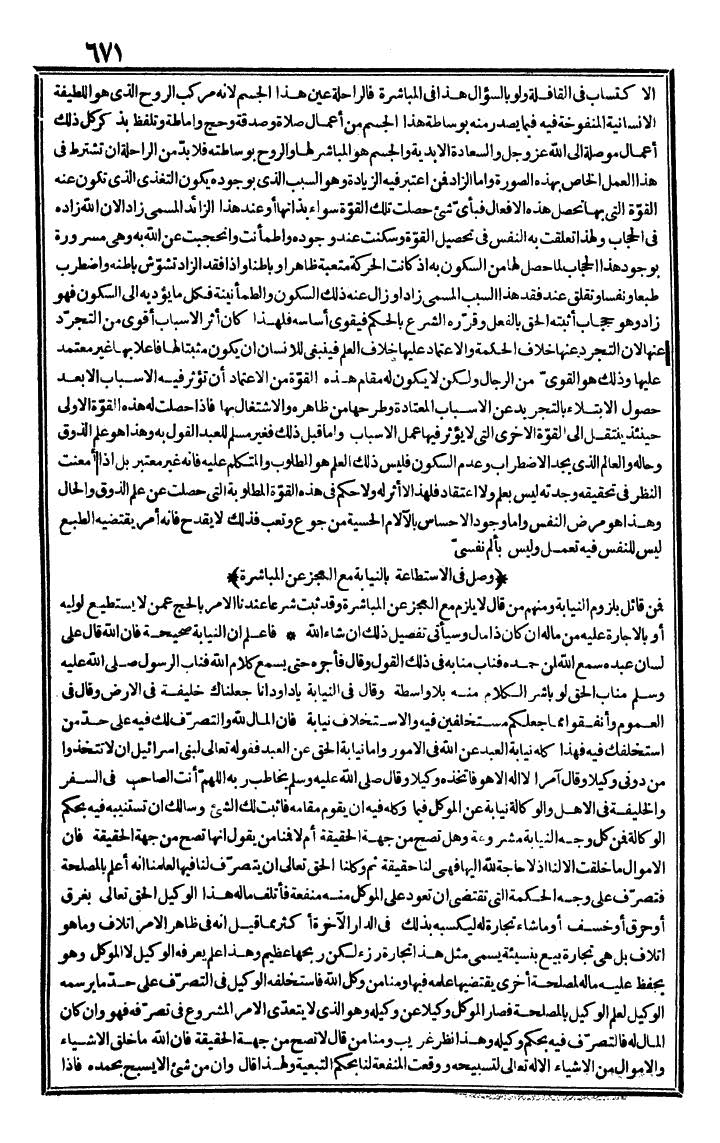 ٦٧١
الا كتساب فى القافلة ولو بالسؤال هذا فى المباشرة فالراحلة عين هذا الجسم لانه مركب الروح الذى هو اللطيفة
الانسانية المنفوخة فيه فيما يصدر منه بوساطة هذا الجسم من أعمال صلاة وصدقة وحج واماطة وتلفظ بذكر كل ذلك
أعمال موصلة الى الله عز وجل والسعادة الابدية والجسم هو المباشر لها والروح بوساطته فلا بدّ من الراحلة ان تشترط فى
هذا العمل الخاص بهذه الصورة واما الزاد فمن اعتبر فيه الزيادة وهو السبب الذى بوجوده يكون التغذى الذى تكون عنه
القوّة التى بها تحصل هذه الافعال فبأى شئ حصلت تلك القوّة سواء بذاتها أو عند هذا الزائد المسمى زادا لان الله زاده
فى الحجاب ولهذا تعلقت به النفس فى تحصيل القوّة وسكنت عند وجوده واطمأنت وانحجبت عن الله به وهى مسرورة
بوجود هذا الحجاب لما حصل لها من السكون به اذ كانت الحركة متعبة ظاهرا وباطنا واذا فقد الزاد تشوّش باطنه واضطرب
طبعا ونفسا وتقلق عند فقد هذا السبب المسمى زادا وزال عنه ذلك السكون والطمأنينة فكل ما يؤديه الى السكون فهو
زاد وهو حجاب أثبته الحق بالفعل وقرّره الشرع بالحكم فيقوى أساسه فلهذا كان أثر الاسباب أقوى من التجرّد
عنها لان التجرد عنها خلاف الحكمة والاعتماد عليها خلاف العلم فينبغى للانسان ان يكون مثبتا لها فاعلا بها غير معتمد
عليها وذلك هو القوىّ من الرجال ولكن لا يكون له مقام هذه القوّة من الاعتماد أن تؤثر فيه الاسباب الا بعد
حصول الابتلاء بالتجريد عن الاسباب المعتادة وطرحها من ظاهره والاشتغال بها فاذا حصلت له هذه القوّة الاولى
حينئذ ينتقل الى القوّة الاخرى التى لا يؤثر فيها عمل الاسباب واما قبل ذلك فغير مسلم للعبد القول به وهذا هو علم الذوق
وحاله والعالم الذى يجد الاضطراب وعدم السكون فليس ذلك العلم هو المطلوب والمتكلم عليه فانه غير معتبر بل اذا أمعنت
النظر فى تحقيقه وجدته ليس بعلم ولا اعتقاد فلهذا لا أثر له ولا حكم فى هذه القوّة المطلوبة التى حصلت عن علم الذوق والحال
وهذا هو مرض النفس واما وجود الاحساس بالآلام الحسية من جوع وتعب فذلك لا يقدح فانه أمر يقتضيه الطبع
ليس للنفس فيه تعمل وليس بألم نفسىّ
﴿وصل فى الاستطاعة بالنيابة مع العجز عن المباشرة﴾
فمن قائل بلزوم النيابة ومنهم من قال لا يلزم مع العجز عن المباشرة وقد ثبت شرعا عندنا الامر بالحج عمن لا يستطيع لوليه
أو بالاجارة عليه من ماله ان كان ذا مال وسيأتى تفصيل ذلك ان شاء الله * فاعلم ان النيابة صحيحة فان الله قال على
لسان عبده سمع الله لمن حمده فناب منابه فى ذلك القول وقال فأجره حتى يسمع كلام الله فناب الرسول صلى الله عليه
وسلم مناب الحق لو باشر الكلام منه بلا واسطة وقال فى النيابة ياداود انا جعلناك خليفة فى الارض وقال فى
العموم وأنفقوا مما جعلكم مستخلفين فيه والاستخلاف نيابة فان المال لله والتصرّف لك فيه على حدّ من
استخلفك فيه فهذا كله نيابة العبد عن الله فى الامور واما نيابة الحق عن العبد فقوله تعالى لبنى اسرائيل ان لا تتخذوا
من دونى وكيلا وقال آمرا لا اله الا هو فاتخذه وكيلا وقال صلى الله عليه وسلم يخاطب ربه اللهمّ أنت الصاحب فى السفر
والخليفة فى الاهل والوكالة نيابة عن الموكل فيما وكله فيه ان يقوم مقامه فأثبت لك الشئ وسالك ان تستنيبه فيه بحكم
الوكالة فمن كل وجه النيابة مشروعة وهل تصح من جهة الحقيقة أم لا فمنا من يقول انها تصح من جهة الحقيقة فان
الاموال ما خلقت الا لنا اذ لا حاجة لله اليها فهى لنا حقيقة ثم وكلنا الحق تعالى ان يتصرّف لنا فيها لعلمنا انه أعلم بالمصلحة
فتصرّف على وجه الحكمة التى تقتضى ان تعود على الموكل منه منفعة فأتلف ماله هذا الوكيل الحق تعالى بغرق
أو حرق أو خسف أو ما شاء تجارة له ليكسبه بذلك فى الدار الآخرة أكثر مما قيل انه فى ظاهر الامر اتلاف وما هو
اتلاف بل هى تجارة بيع بنسيئة يسمى مثل هذا تجارة رزء لكن ربحها عظيم وهذا علم يعرفه الوكيل لا الموكل وهو
يحفظ عليه ماله لمصلحة أخرى يقتضيها علمه فيها ومنا من وكل الله فاستخلفه الوكيل فى التصرّف على حدّ ما يرسمه
الوكيل لعلم الوكيل بالمصلحة فصار الموكل وكيلا عن وكيله وهو الذى لا يتعدّى الامر المشروع فى تصرّفه فهو وان كان
المال له فالتصرّف فيه بحكم وكيله وهذا نظر غريب ومنا من قال لا تصح من جهة الحقيقة فان الله ما خلق الاشياء
والاموال من الاشياء الا له تعالى لتسبيحه ووقعت المنفعة لنا بحكم التبعية ولهذا قال وان من شئ الا يسبح بحمده فاذا